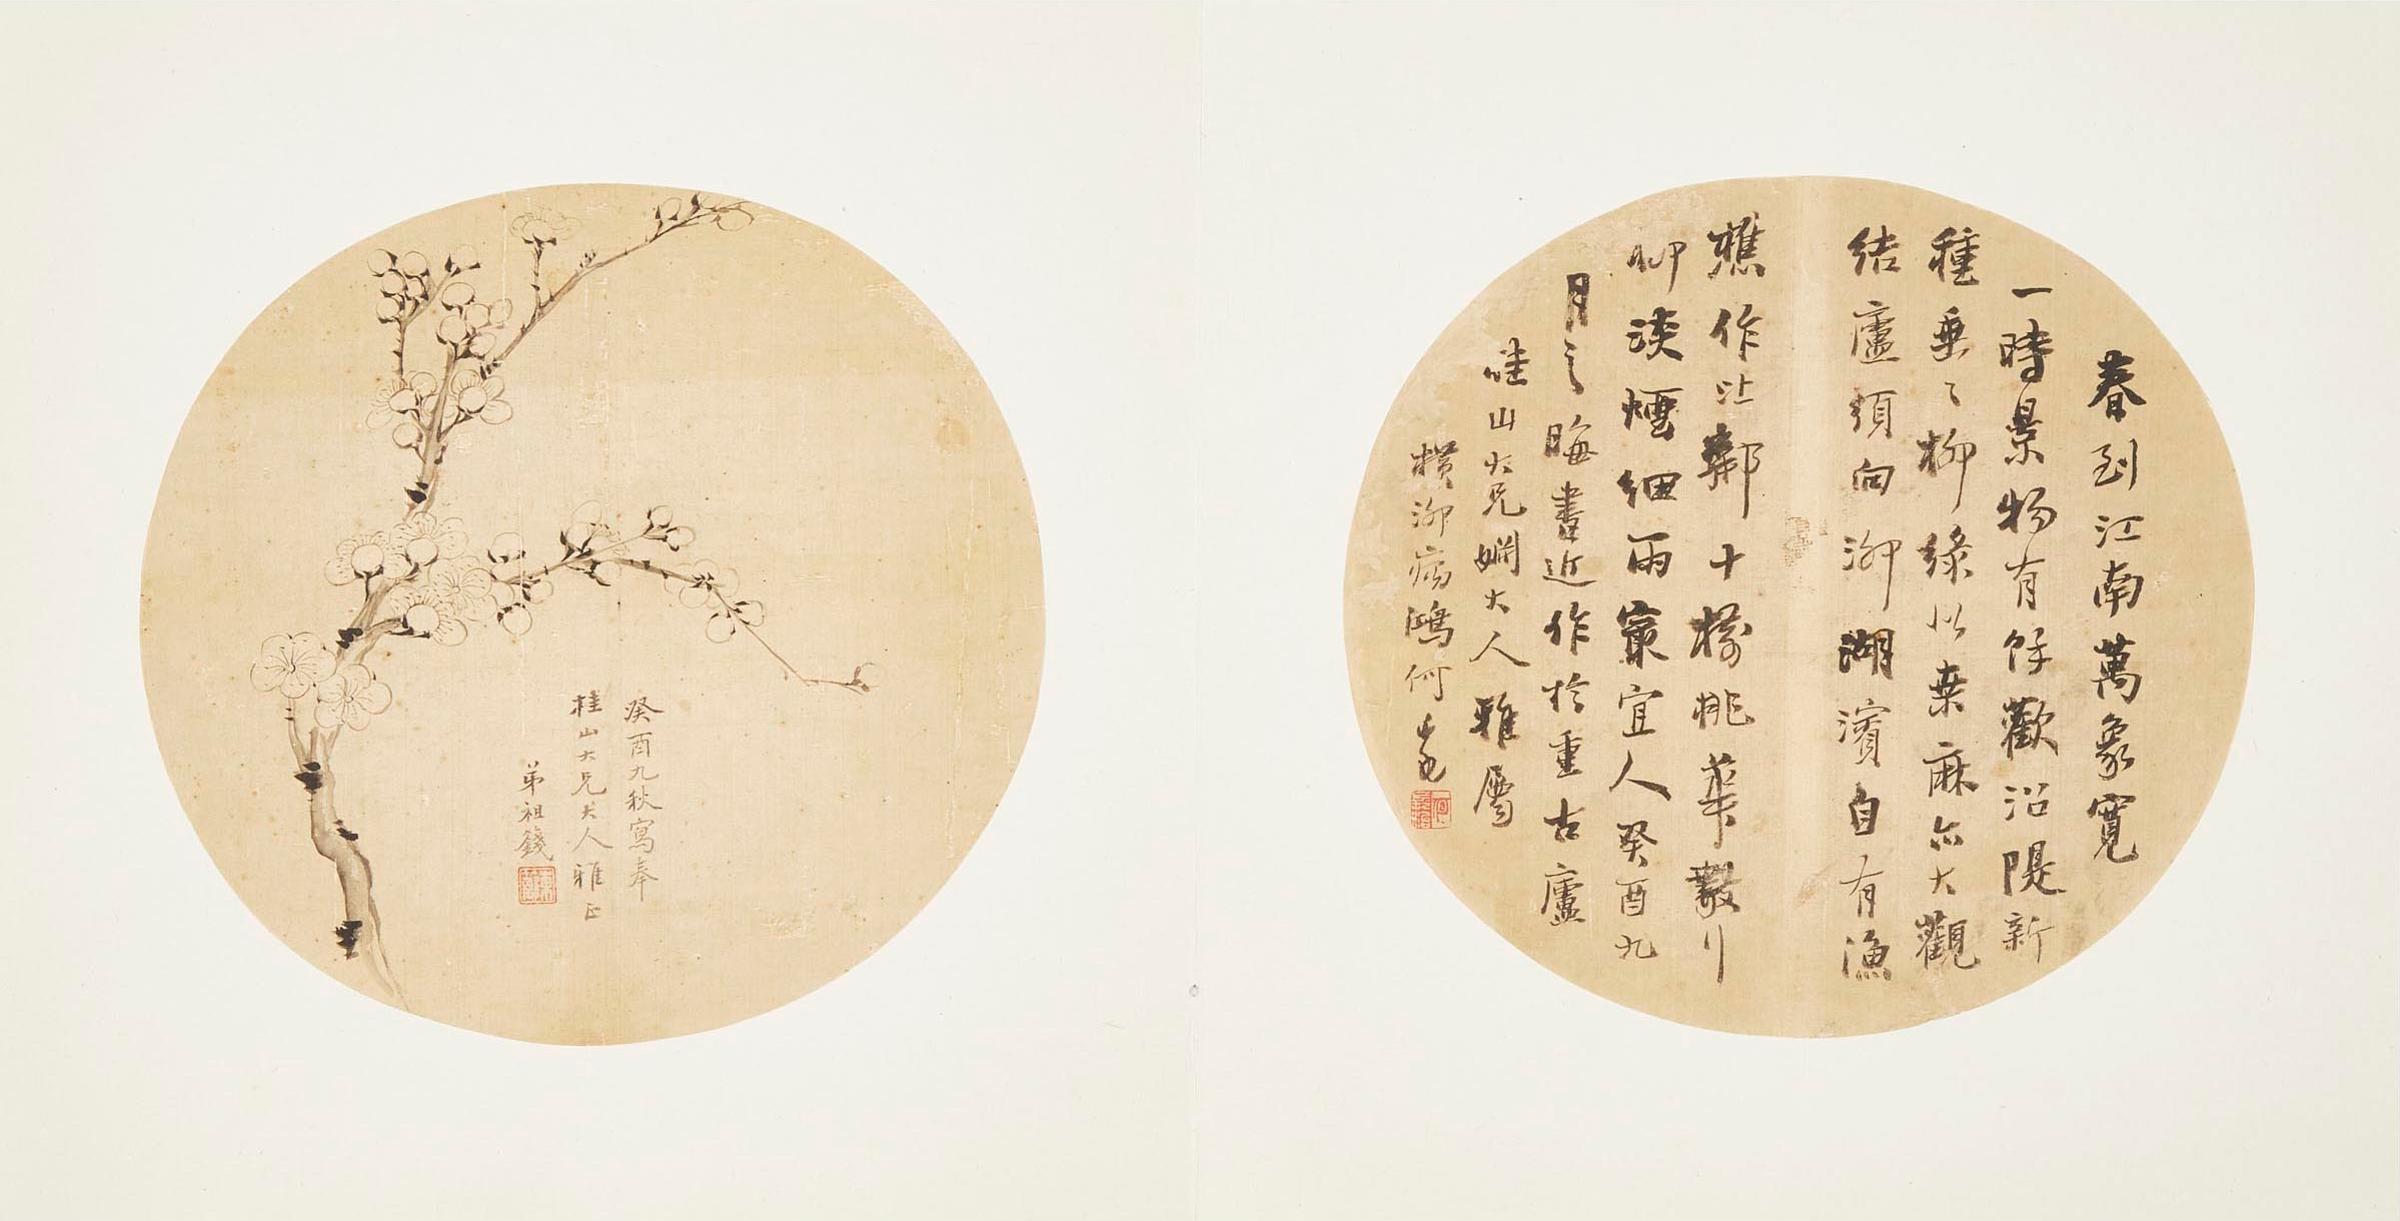 春到江南萬象寬
一時景物有餘歡沿隄新
種垂〻柳綠比桑麻亦大觀
結廬須向泖湖濱自有漁
樵作比鄰十樹桃華數行
柳淡煙細雨最宜人癸酉九
月之晦書近作於重古廬
桂山大兄姻大人雅屬
橫泖病鴻何
癸酉九秋寫奉
桂山大兄大人雅正
弟祖錢